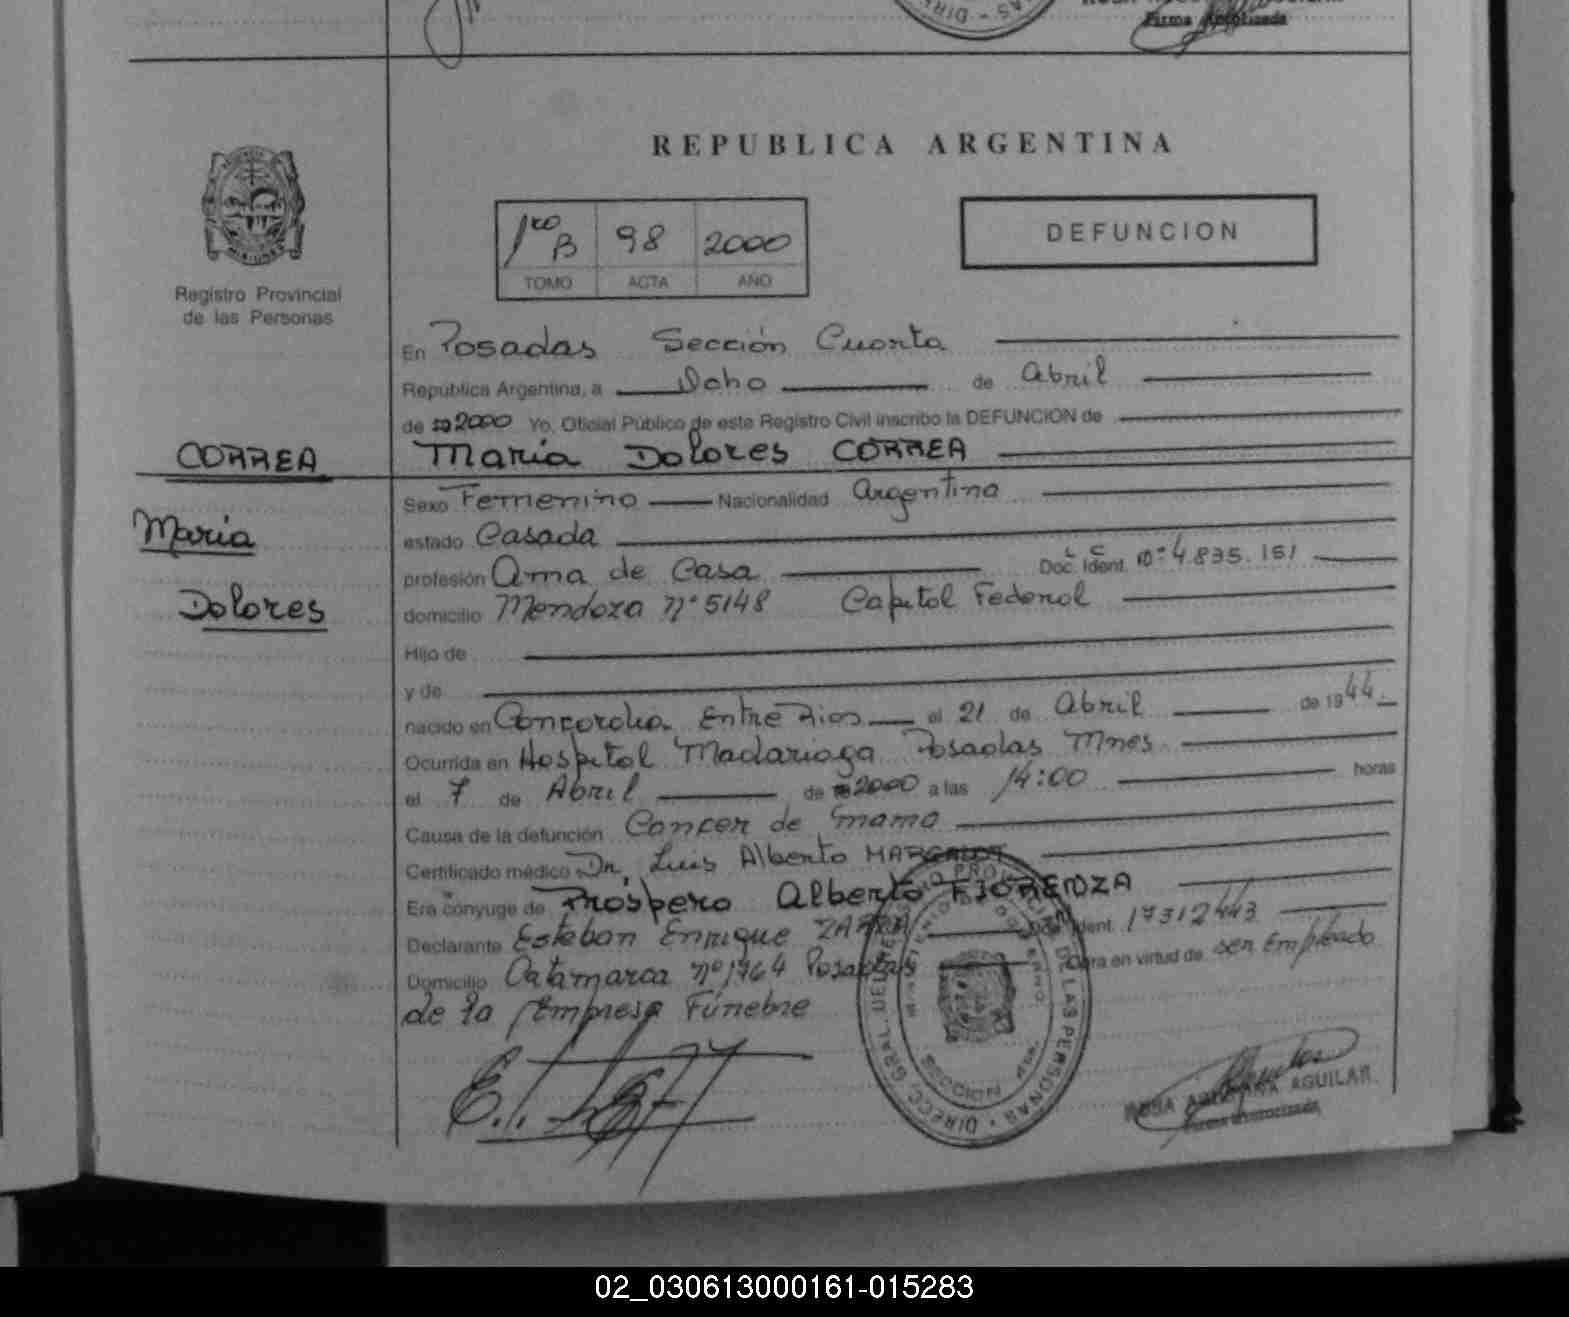 Firma Autorizada
REPUBLICA ARGENTINA
1ro B 98 2000
TOMO ACTA AÑO
DEFUNCION
Registro Provincial
de las Personas
En Posadas Sección Cuarta
República Argentina, a Ocho de Abril
de 2000 Yo, Oficial Público de este Registro Civil inscribo la DEFUNCION de
CORREA María Dolores CORREA
Sexo Femenino Nacionalidad Argentina
María
estado Casada
profesión Ama de Casa Doc. Ident. L C Nº 4.835.151
Dolores
domicilio Mendoza nº 5148 Capital Federal
Hijo de
y de
nacido en Concordia Entre Rios el 21 de Abril de 1944
Ocurrida en Hospital Madariaga Posadas Mnes
el 7 de Abril de 2000 a las 14:00 horas
Causa de la defunción Cancer de mama
Certificado médico Dr. Luis Alberto MARGALOT
Era cónyuge de Prospero Alberto FIORENZA
Declarante Esteban Enrique ZARZA Doc. Ident. 17312443
Domicilio Catamarca nº 1764 Posadas Obra en virtud de ser Empleado
de la Empresa Fúnebre
DIRECC. GRAL. DEL REG. PROV. DE LAS PERSONAS
MINISTERIO DE GOBIERNO
ROSA ADRIANA AGUILAR
Firma Autorizada
02_030613000161-015283